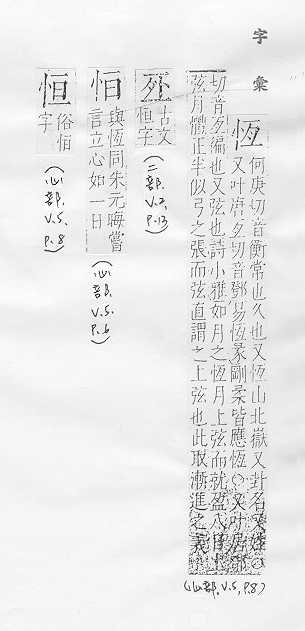 字彙
恆
何庚切音衡常也久也又恆山北嶽又卦名又姓○
又叶唐夕切音鄧易恆彖剛柔皆應恆○又叶居鄧
切音亙徧也又弦也詩小雅如月之恆月上弦而就盈八日
弦月體正半似弓之張而弦直謂之上弦也此取漸進之義
(心部, V.5, P.8)
死
古文
恒字
(二部. V.2, P.13)
㤆
與恆同朱元晦嘗
言立心如一日
(心部. V.5. P.6)
恒
俗恆
字
(心部. V.5. P.8)